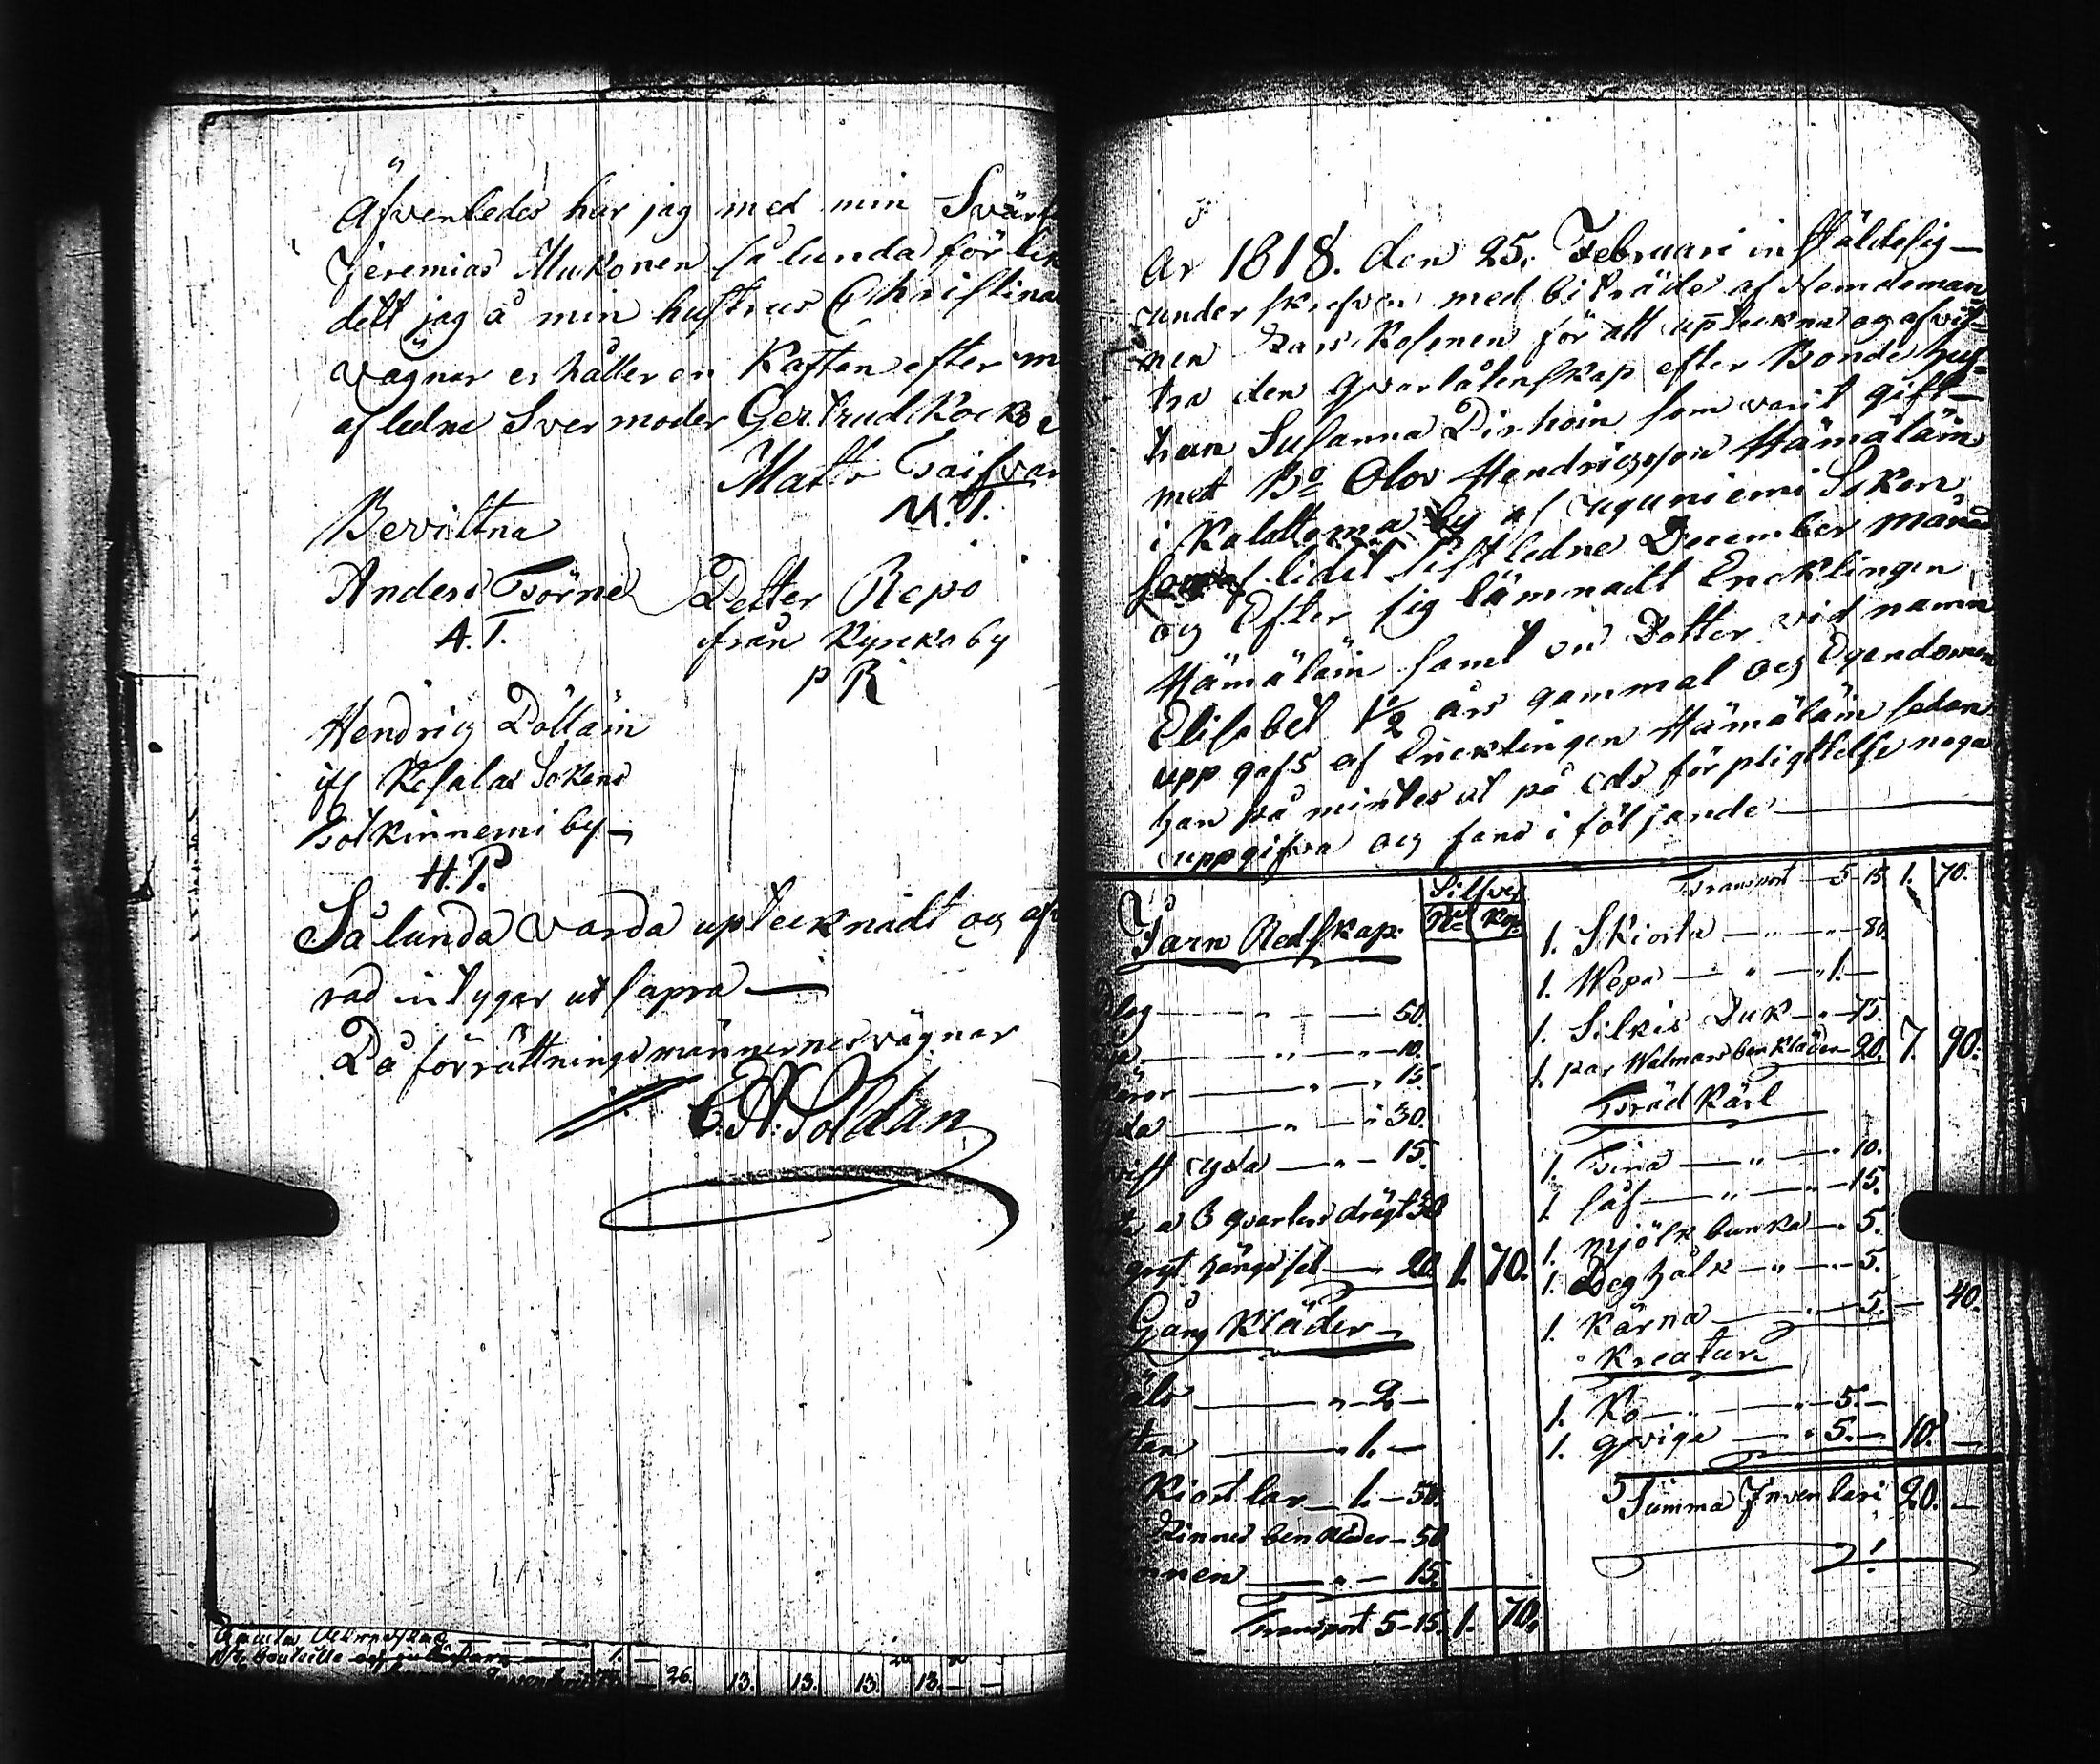 Äfvenledes har jag med min Svär
Jeremias Mukonen så lunda för lik
dett jag å min hustrus Christina
vägnar er håller en Kaftan efter m
afledne Svermoder Gertrud Kocko
Matts Taifvan
M.T.
Bevittna
Anders Törne Petter Repo
A.T. från Kyrcko by
P R
Hendrig Pöllain
iff Kesalax Sokens
by
H.P.
Så lunda varda uptecknadt og af
rad intygar ut sapra
På förrättningsmännernes vägnar
C.A. Poldan
1. —
26. 13. 13. 13. 13. — —
År 1818. den 25. Februari in stälde sig
under skrefven med biträde af Nemdeman
nen Lars Kosonen för att uptekna og afvit
tra den qvarlåtenskap efter Bonde hus
trun Susanna Pirhoin som varit gift
met Bd Olov Hendricsson Hämäläin
i by af Uguniemi Sokn,
som aflidit sist ledne December månad
og Efter sig lämnadt Encklingen
Hämäläin samt en Dotter vid namn
Elisabet 1 1/2 års gammal og Egendomen
upp gafs af Encklingen Hämäläin sedan
han på mintes at på eds för pligttelse noga
uppgifva og fans i föl jande
Silfver
Rul Kop
Jarn Redskap.
— " — 50.
— " — 10.
— " — 15.
— " — 30.
yxa — " — 15.
a 3 qvarters drägt 30
hängsel — 20 1. 70.
Gång Kläder
— " 2 —
— " 1. —
Kiortlar — 1. — 50.
ben kläder — 50
— " — 15.
Transport 5 - 15. 1. 70.
Transport — 5 - 15 1. 70.
1. Skiorta — " — 80.
1. Wepa — " — 1. —
1. Silkis Duk — " 75.
1. par Walmars ben kläder 20. 7. 90.
Träd Kärl
1. Tina — " — 10.
1. såf — " — 15.
1. mjölk bunka — . 5.
1. Deg hålk — " — 5.
1. Kärna — 5. — 40.
Kreatur
1. Ko — " — 5. —
1. qviga — " 5. — 10. —
Summa Inventari 20. —